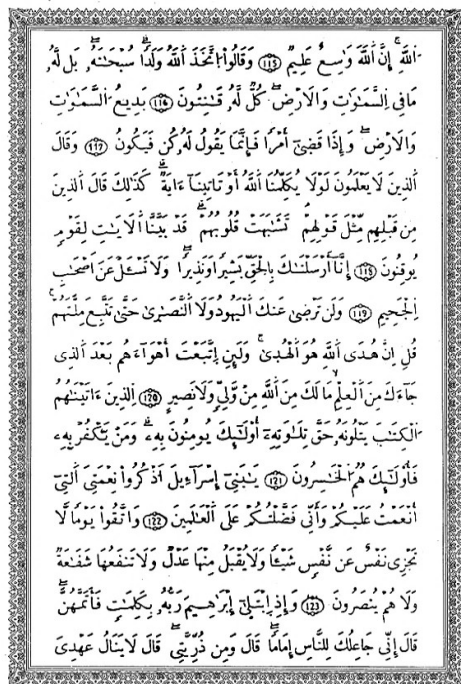 اَللَّهِۖ إِنَّ اَللَّهَ وَٰسِعٌ عَلِيمٌ (115) وَقَالُواْ اُتَّخَذَ اَللَّهُ وَلَداً سُبْحَٰنَهُۥۖ بَل لَّهُۥ
مَا فِے اِلسَّمَٰوَٰتِ وَالَارْضِۖ كُلٌّ لَّهُۥ قَٰنِتُونَ (116) بَدِيعُ اُلسَّمَٰوَٰتِ
وَالَارْضِۖ وَإِذَا قَضَىٰٓ أَمْراً فَإِنَّمَا يَقُولُ لَهُۥ كُن فَيَكُونُ (117) وَقَالَ
اَلذِينَ لَا يَعْلَمُونَ لَوْلَا يُكَلِّمُنَا اَللَّهُ أَوْ تَاتِينَآ ءَايَةٌۖ كَذَٰلِكَ قَالَ اَلذِينَ
مِن قَبْلِهِم مِّثْلَ قَوْلِهِمْ تَشَٰبَهَتْ قُلُوبُهُمْۖ قَدْ بَيَّنَّا اَلَايَٰتِ لِقَوْمٍ
يُوقِنُونَ (118) إِنَّآ أَرْسَلْنَٰكَ بِالْحَقِّ بَشِيراً وَنَذِيراًۖ وَلَا تَسْـَٔلْ عَنَ اَصْحَٰبِ
اِلْجَحِيمِ (119) وَلَن تَرْضَىٰ عَنكَ اَلْيَهُودُ وَلَا اَلنَّصَٰرَىٰ حَتَّىٰ تَتَّبِعَ مِلَّتَهُمْۖ
قُلِ اِنَّ هُدَى اَللَّهِ هُوَ اَلْهُدَىٰۖ وَلَئِنِ اِتَّبَعْتَ أَهْوَآءَهُم بَعْدَ اَلذِے
جَآءَكَ مِنَ اَلْعِلْمِ مَا لَكَ مِنَ اَللَّهِ مِنْ وَّلِيٍّ وَلَا نَصِيرٍ (120) اِلذِينَ ءَاتَيْنَٰهُمُ
اُلْكِتَٰبَ يَتْلُونَهُۥ حَقَّ تِلَاوَتِهِۦٓ أُوْلَٰٓئِكَ يُومِنُونَ بِهِۦۖ وَمَنْ يَّكْفُرْ بِهِۦ
فَأُوْلَٰٓئِكَ هُمُ اُلْخَٰسِرُونَ (121) يَٰبَنِےٓ إِسْرَآءِيلَ اَذْكُرُواْ نِعْمَتِيَ اَلتِےٓ
أَنْعَمْتُ عَلَيْكُمْ وَأَنِّے فَضَّلْتُكُمْ عَلَى اَلْعَٰلَمِينَ (122) وَاتَّقُواْ يَوْماً لَّا
تَجْزِے نَفْسٌ عَن نَّفْسٍ شَيْـٔاً وَلَا يُقْبَلُ مِنْهَا عَدْلٌ وَلَا تَنفَعُهَا شَفَٰعَةٌ
وَلَا هُمْ يُنصَرُونَ (123) وَإِذِ اِبْتَلَىٰٓ إِبْرَٰهِيمَ رَبُّهُۥ بِكَلِمَٰتٍ فَأَتَمَّهُنَّۖ
قَالَ إِنِّے جَاعِلُكَ لِلنَّاسِ إِمَاماًۖ قَالَ وَمِن ذُرِّيَّتِےۖ قَالَ لَا يَنَالُ عَهْدِيَ